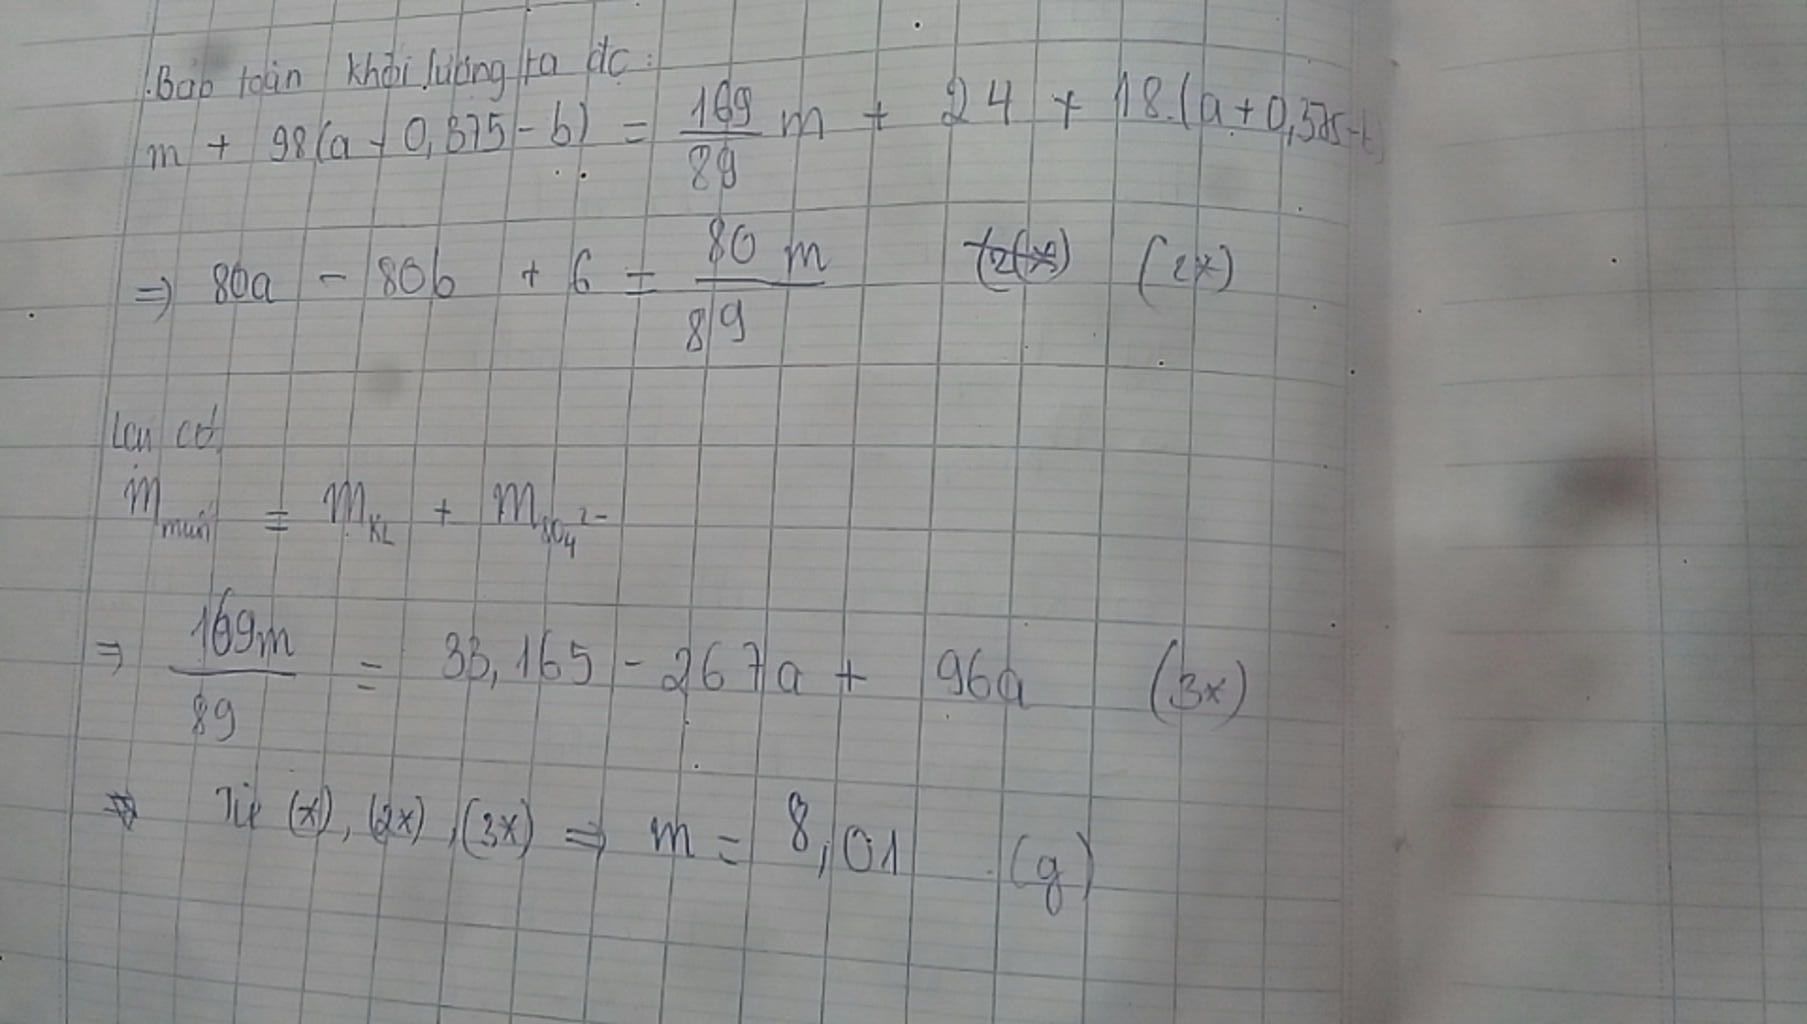 Bảo toàn khối lượng ta đc:
m + 98(a + 0,375 - b) = 169/89 m + 24 + 18.(a + 0,375-b)
=> 80a - 80b + 6 = 80m/89 (2x)
Lại có
m muối = m KL + m SO4^2-
=> 169m/89 = 33,165 - 267a + 96a (3x)
Từ (x), (2x), (3x) => m = 8,01 (g)